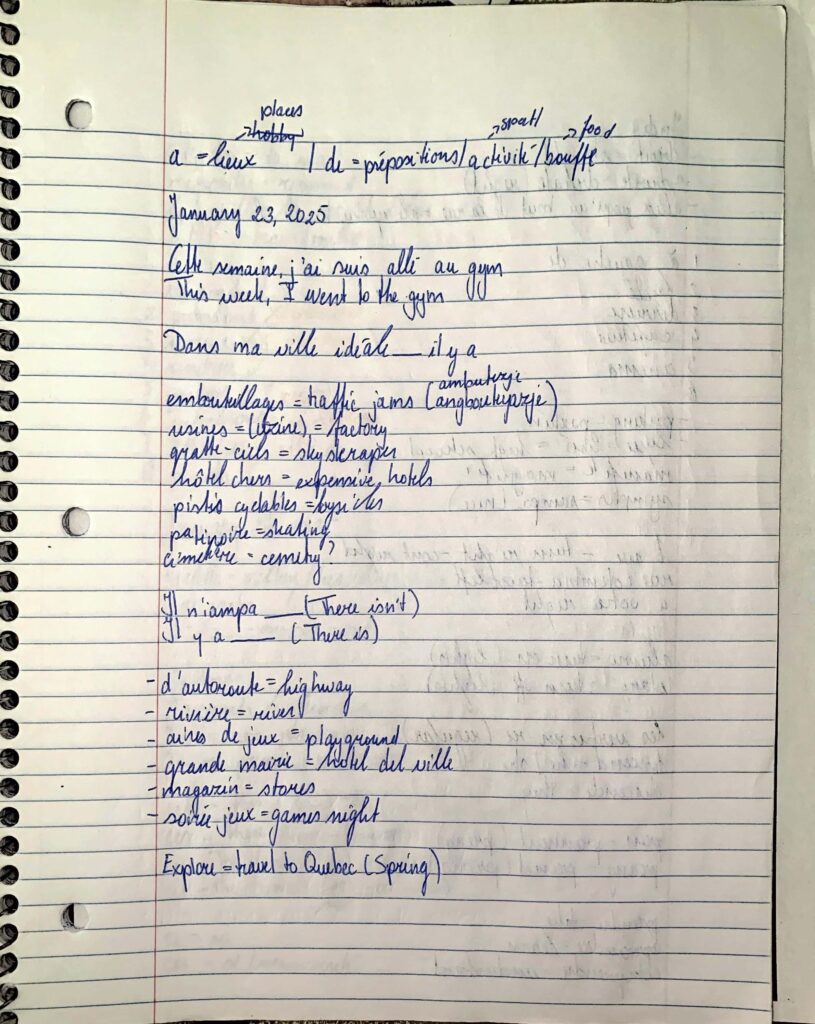 places
hobby
sport
food
a = lieux / de = prépositions/activité/bouffe
January 23, 2025
Cette semaine, j'ai suis allé au gym
This week, I went to the gym
Dans ma ville idéale ___ il y a
embouteillages = traffic jams (angboutuyarje)
usines = (uzine) = factory
gratte-ciels = skyskraper
hôtel chers = expensive hotels
pistis cyclables =
patinoire = skating
cimetière = cemetry?
Il n'iampa ___ (There isn't)
Il y a ___ (There is)
- d'autoroute = highway
- rivière = river
- aires de jeux = playground
- grande mairie = hôtel del ville
- magazin = stores
- soirée jeux = games night
Explore = travel to Quebec (Spring)